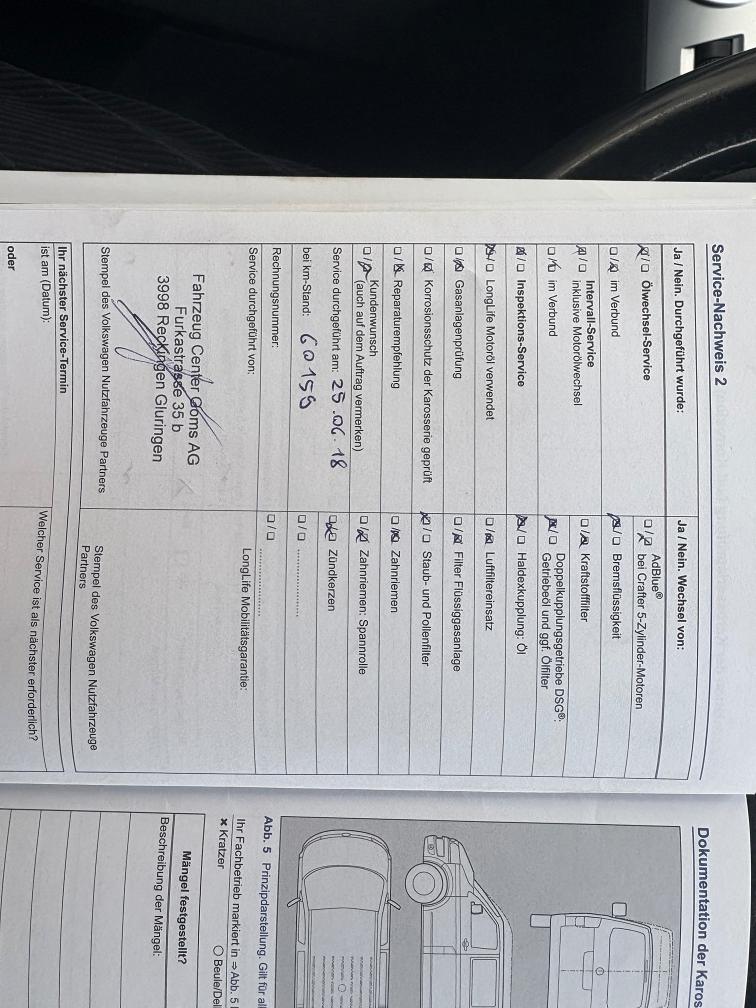 Service-Nachweis 2
Ja / Nein. Durchgeführt wurde:
☒/☐ Ölwechsel-Service
☐/☒ im Verbund
☒/☐ Intervall-Service
inklusive Motorölwechsel
☐/☒ im Verbund
☒/☐ Inspektions-Service
☒/☐ LongLife Motoröl verwendet
☐/☒ Gasanlagenprüfung
☐/☒ Korrosionsschutz der Karosserie geprüft
☐/☒ Reparaturempfehlung
☐/☒ Kundenwunsch
(auch auf dem Auftrag vermerken)
Service durchgeführt am: 25.06.18
bei km-Stand: 60155
Rechnungsnummer:
Service durchgeführt von:
Fahrzeug Center Goms AG
Furkastrasse 35 b
3998 Reckingen Gluringen
Stempel des Volkswagen Nutzfahrzeuge Partners
Ja / Nein. Wechsel von:
☐/☒ AdBlue®
bei Crafter 5-Zylinder-Motoren
☒/☐ Bremsflüssigkeit
☐/☒ Kraftstofffilter
☒/☐ Doppelkupplungsgetriebe DSG®:
Getriebeöl und ggf. Ölfilter
☒/☐ Haldexkupplung: Öl
☐/☒ Luftfiltereinsatz
☐/☒ Filter Flüssiggasanlage
☒/☐ Staub- und Pollenfilter
☐/☒ Zahnriemen
☐/☒ Zahnriemen: Spannrolle
Zündkerzen
☐/☐ ....................
☐/☐ ....................
LongLife Mobilitätsgarantie:
Stempel des Volkswagen Nutzfahrzeuge
Partners
Ihr nächster Service-Termin
ist am (Datum):
oder
Welcher Service ist als nächster erforderlich?
Dokumentation der Karos
Abb. 5 Prinzipdarstellung. Gilt für al
Ihr Fachbetrieb markiert in ⇒ Abb. 5
✖ Kratzer
○ Beule/Del
Mängel festgestellt?
Beschreibung der Mängel: